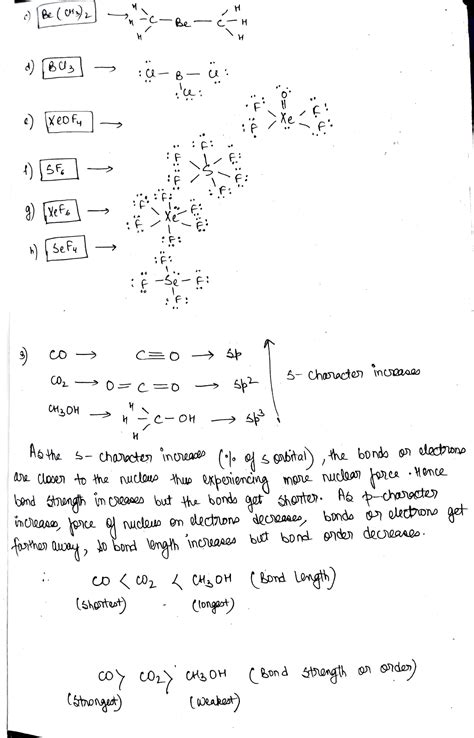 c) Be(CH3)2 → H H H C – Be – C H H H
d) BCl3 → :Cl – B – Cl: :Cl:
e) XeOF4 → :O: F F Xe F F
f) SF6 → F F F S F F F
g) XeF6 → F F F Xe F F F
h) SeF4 → F F – Se – F F
3) CO → C≡O → sp
CO2 → O=C=O → sp2
s- character increases
CH3OH → H H – C – OH → sp3
H
As the s- character increases (% of s orbital), the bonds or electrons
are closer to the nucleus thus experiencing more nuclear force. Hence
bond strength increases but the bonds get shorter. As p-character
increases, force of nucleus on electrons decreases, bonds or electrons get
farther away, so bond length increases but bond order decreases.
∴ CO < CO2 < CH3OH (Bond Length)
(shortest) (longest)
CO > CO2 > CH3OH (Bond strength or order)
(Strongest) (weakest)